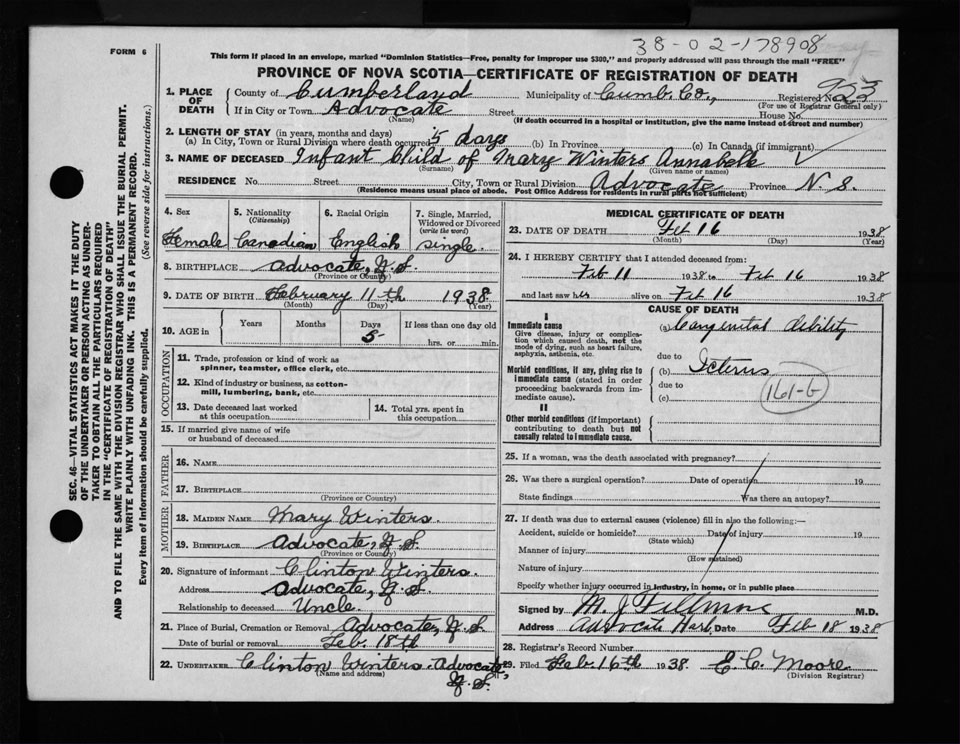 38-02-178908
FORM 6
This form if placed in an envelope, marked "Dominion Statistics—Free, penalty for improper use $300," and properly addressed will pass through the mail "FREE"
PROVINCE OF NOVA SCOTIA—CERTIFICATE OF REGISTRATION OF DEATH
923
1. PLACE OF DEATH
County of Cumberland Municipality of Cumb. Co., Registered No.
(For use of Registrar General only)
If in City or Town Advocate Street House No.
(Name) (If death occurred in a hospital or institution, give the name instead of street and number)
2. LENGTH OF STAY (in years, months and days)
(a) In City, Town or Rural Division where death occurred 5 days (b) In Province (c) In Canada (if immigrant)
3. NAME OF DECEASED Infant Child of Mary Winters Annabelle
(Surname) (Given name or names)
RESIDENCE No. Street City, Town or Rural Division Advocate Province N. S.
(Residence means usual place of abode. Post Office Address for residents in rural parts not sufficient)
4. Sex
Female
5. Nationality
(Citizenship)
Canadian
6. Racial Origin
English
7. Single, Married, Widowed or Divorced
(write the word)
single.
8. BIRTHPLACE Advocate, N. S.
(Province or Country)
9. DATE OF BIRTH February 11th 1938
(Month) (Day) (Year)
10. AGE in
Years Months Days If less than one day old
5 hrs. or min.
OCCUPATION
11. Trade, profession or kind of work as
spinner, teamster, office clerk, etc.
12. Kind of industry or business, as cotton-
mill, lumbering, bank, etc.
13. Date deceased last worked
at this occupation
14. Total yrs. spent in
this occupation
15. If married give name of wife
or husband of deceased
FATHER
16. NAME
17. BIRTHPLACE
(Province or Country)
MOTHER
18. MAIDEN NAME Mary Winters.
19. BIRTHPLACE Advocate, N. S.
(Province or Country)
20. Signature of informant Clinton Winters.
Address Advocate, N. S.
Relationship to deceased Uncle.
21. Place of Burial, Cremation or Removal Advocate, N. S.
Date of burial or removal Feb. 18th
22. UNDERTAKER Clinton Winters. Advocate,
(Name and address) N. S.
MEDICAL CERTIFICATE OF DEATH
23. DATE OF DEATH Feb 16 1938
(Month) (Day) (Year)
24. I HEREBY CERTIFY that I attended deceased from:
Feb 11 1938 to Feb 16 1938
and last saw her alive on Feb 16 1938
CAUSE OF DEATH
I
Immediate cause
Give disease, injury or complica-
tion which caused death, not the
mode of dying, such as heart failure,
asphyxia, asthenia, etc.
(a) Congenital debility
due to
Morbid conditions, if any, giving rise to
immediate cause (stated in order
proceeding backwards from im-
mediate cause).
(b) Icterus
due to
(c)
161-G
II
Other morbid conditions (if important)
contributing to death but not
causally related to immediate cause.
25. If a woman, was the death associated with pregnancy?
26. Was there a surgical operation? Date of operation 19
State findings Was there an autopsy?
27. If death was due to external causes (violence) fill in also the following:—
Accident, suicide or homicide? Date of injury 19
(State which)
Manner of injury
(How sustained)
Nature of injury
Specify whether injury occurred in industry, in home, or in public place
Signed by M. J. Fillmore M.D.
Address Advocate Harb. Date Feb 18 1938
28. Registrar's Record Number
29. Filed Feb. 16th 1938. E. C. Moore
(Division Registrar)
SEC. 46—VITAL STATISTICS ACT MAKES IT THE DUTY
OF THE UNDERTAKER OR PERSON ACTING AS UNDER-
TAKER TO OBTAIN ALL THE PARTICULARS REQUIRED
IN THE "CERTIFICATE OF REGISTRATION OF DEATH"
AND TO FILE THE SAME WITH THE DIVISION REGISTRAR WHO SHALL ISSUE THE BURIAL PERMIT.
WRITE PLAINLY WITH UNFADING INK. THIS IS A PERMANENT RECORD.
Every item of information should be carefully supplied. (See reverse side for instructions.)